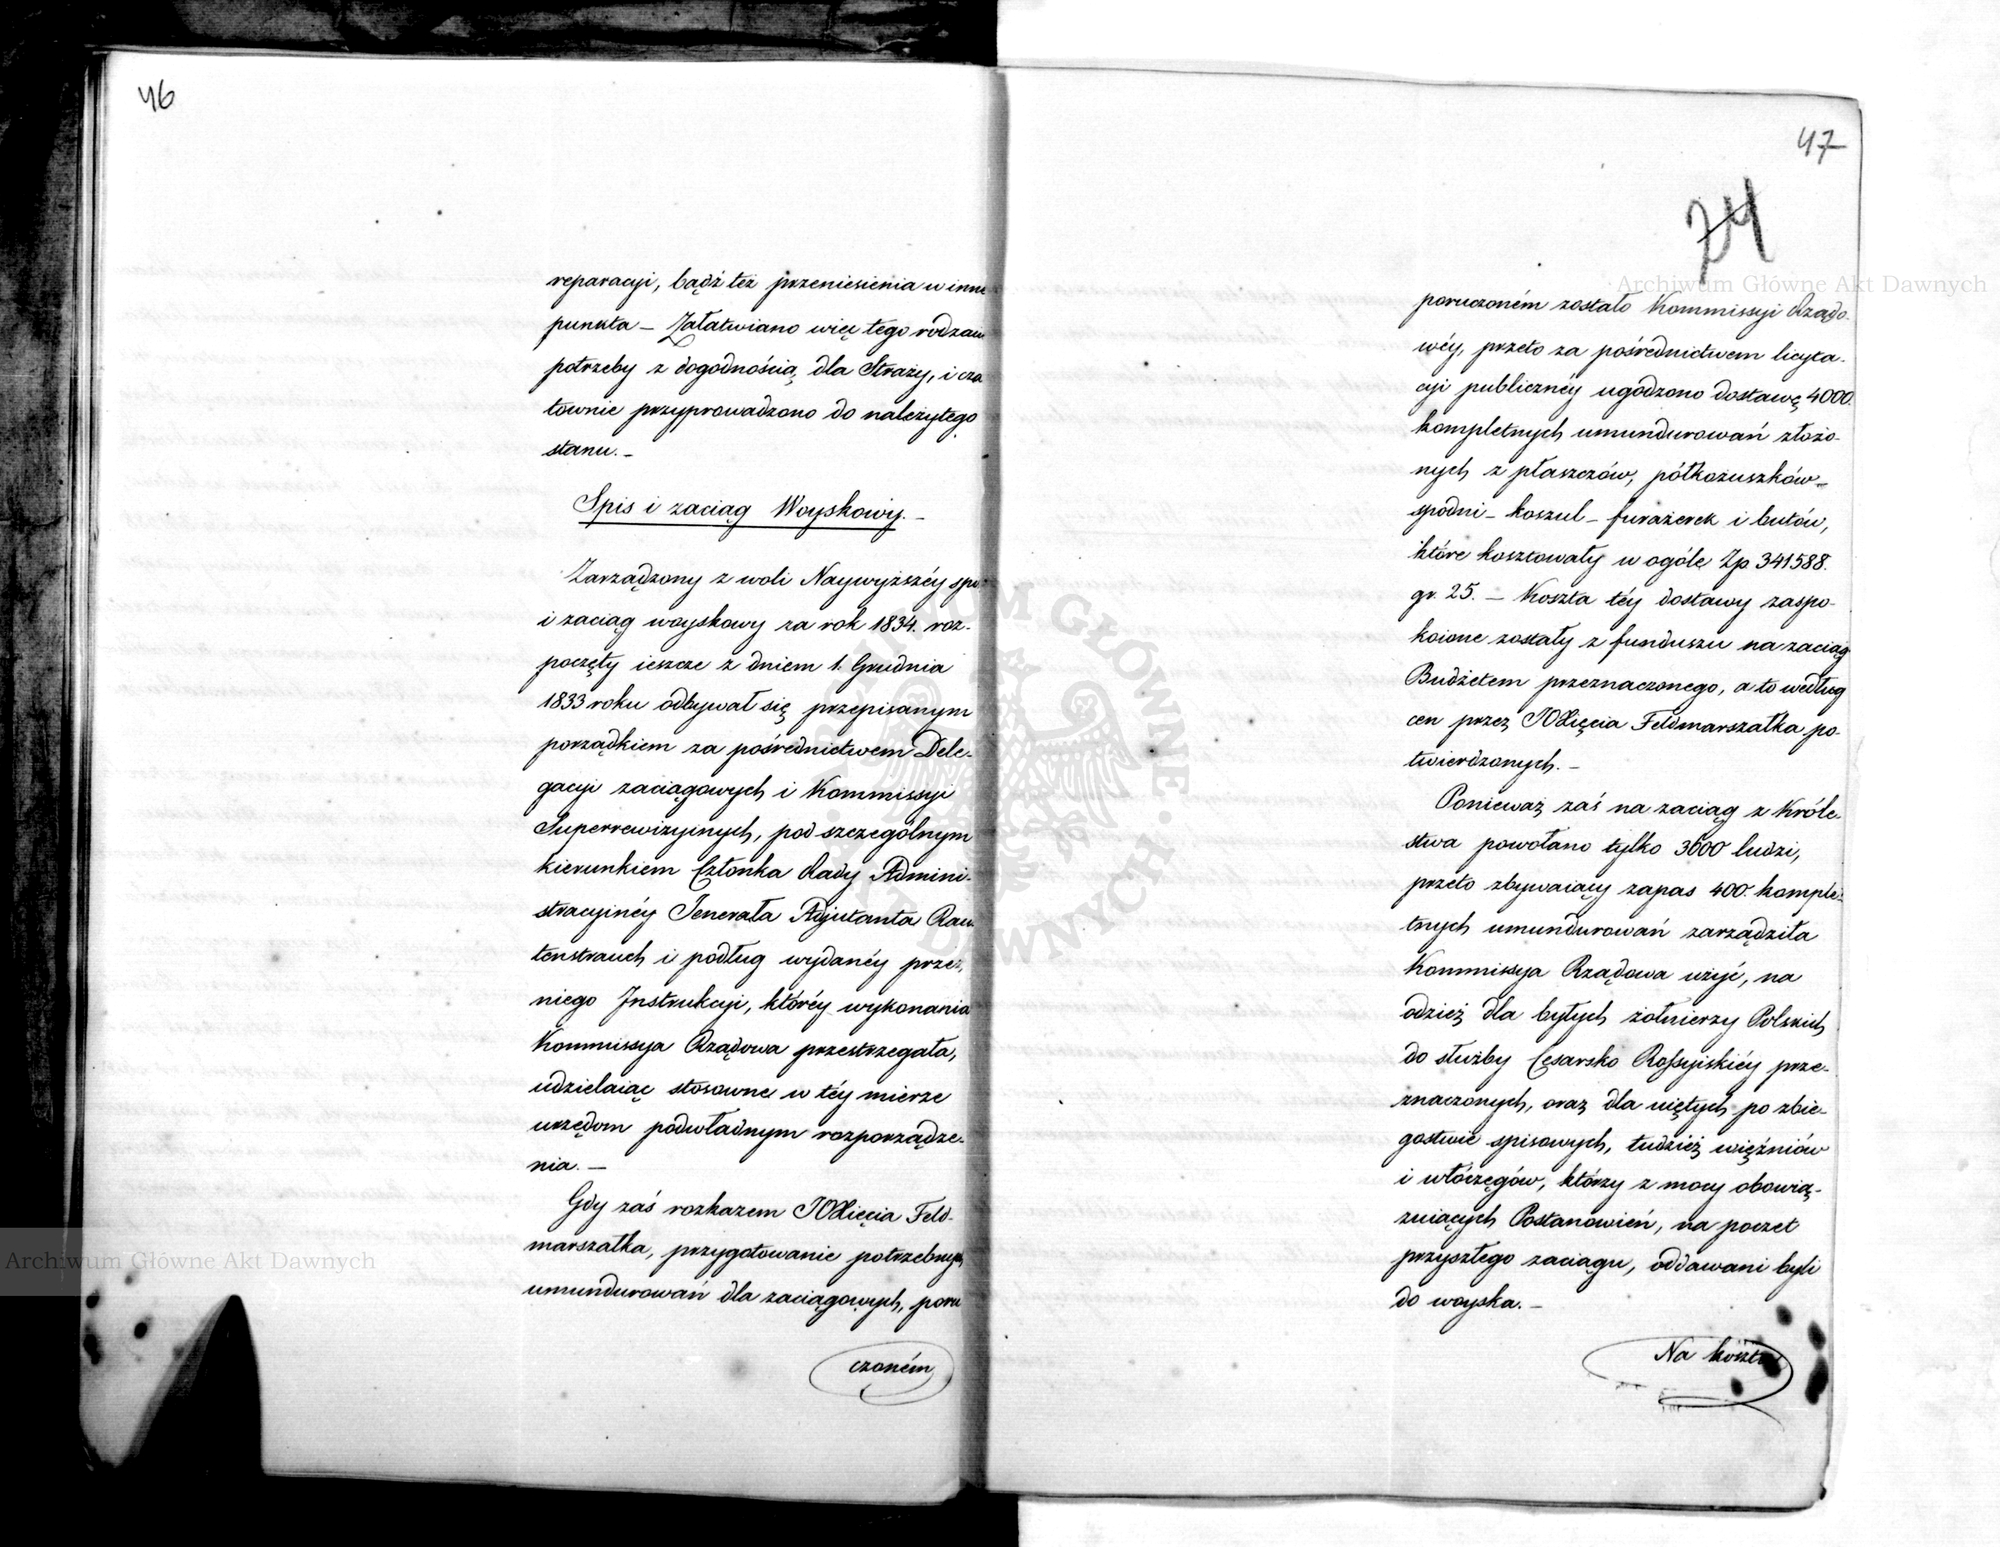 46
reparacyi, bądź też przeniesienia w inne
punkta – Załatwiano więc tego rodzaiu
potrzeby z dogodnością dla Straży, i cza
townie przyprowadzono do należytego
stanu. –
Spis i zaciąg Woyskowy. –
Zarządzony z woli Naywyższéy spis
i zaciąg woyskowy za rok 1834. roz-
poczęty ieszcze z dniem 1. Grudnia
1833 roku odbywał się przepisanym
porządkiem za pośrednictwem Dele-
gacyi zaciągowych i Kommissyi
Superrewizyinych, pod szczególnym
kierunkiem Członka Rady Admini-
stracyinéy Jenerała Adjutanta Rau-
tenstrauch i podług wydanéy przez
niego Instrukcyi, któréy wykonania
Kommissya Rządowa przestrzegała,
udzielaiąc stosowne w téy mierze
urzędom podwładnym rozporządze-
nia. –
Gdy zaś rozkazem JOXięcia Feld-
marszałka, przygotowanie potrzebnych
umundurowań dla zaciągowych, poru
czoném
47
24
Archiwum Główne Akt Dawnych
poruczoném zostało Kommissyi Rządo-
wéy, przeto za pośrednictwem licyta-
cyi publicznéy ugodzono dostawę 4000.
kompletnych umundurowań złożo-
nych z płaszczów, półkożuszków –
spodni – koszul – furażerek i butów,
które kosztowały w ogóle Zp 341588.
gr. 25. – Koszta téy dostawy zaspo-
koione zostały z funduszu na zaciąg
Budżetem przeznaczonego, a to według
cen przez JOXięcia Feldmarszałka po-
twierdzonych. –
Ponieważ zaś na zaciąg z Króle-
stwa powołano tylko 3600 ludzi,
przeto zbywaiący zapas 400. komple-
tnych umundurowań zarządziła
Kommissya Rządowa użyć, na
odzież dla byłych żołnierzy Polskich
do służby Cesarsko Rossyiskiéy prze-
znaczonych, oraz dla uiętych po zbie-
gostwie spisowych, tudzież więźniów
i włóczęgów, którzy z mocy obowią-
zuiących Postanowień, na poczet
przyszłego zaciągu, oddawani byli
do woyska. –
Na koszta
Archiwum Główne Akt Dawnych
ARCHIWUM GŁÓWNE AKT DAWNYCH